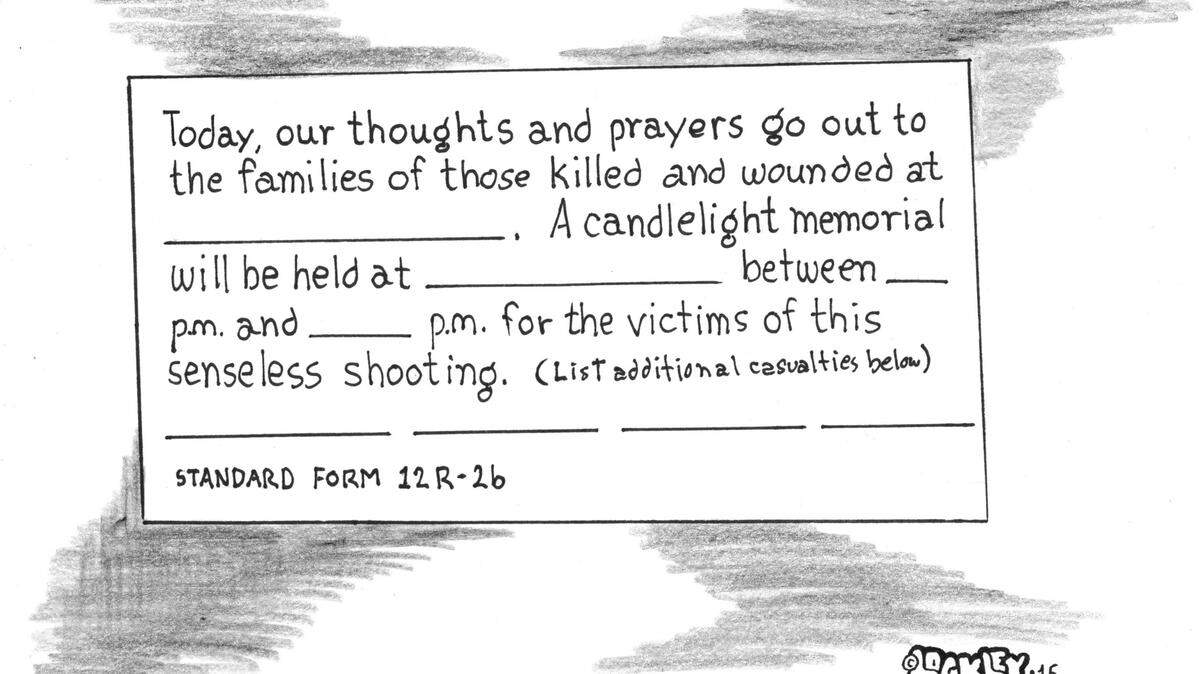 Today, our thoughts and prayers go out to
the families of those killed and wounded at
____________. A candlelight memorial
will be held at ____________ between ___
p.m. and ____ p.m. for the victims of this
senseless shooting. (List additional casualties below)
________ ________ ________ ________
STANDARD FORM 12R-2b